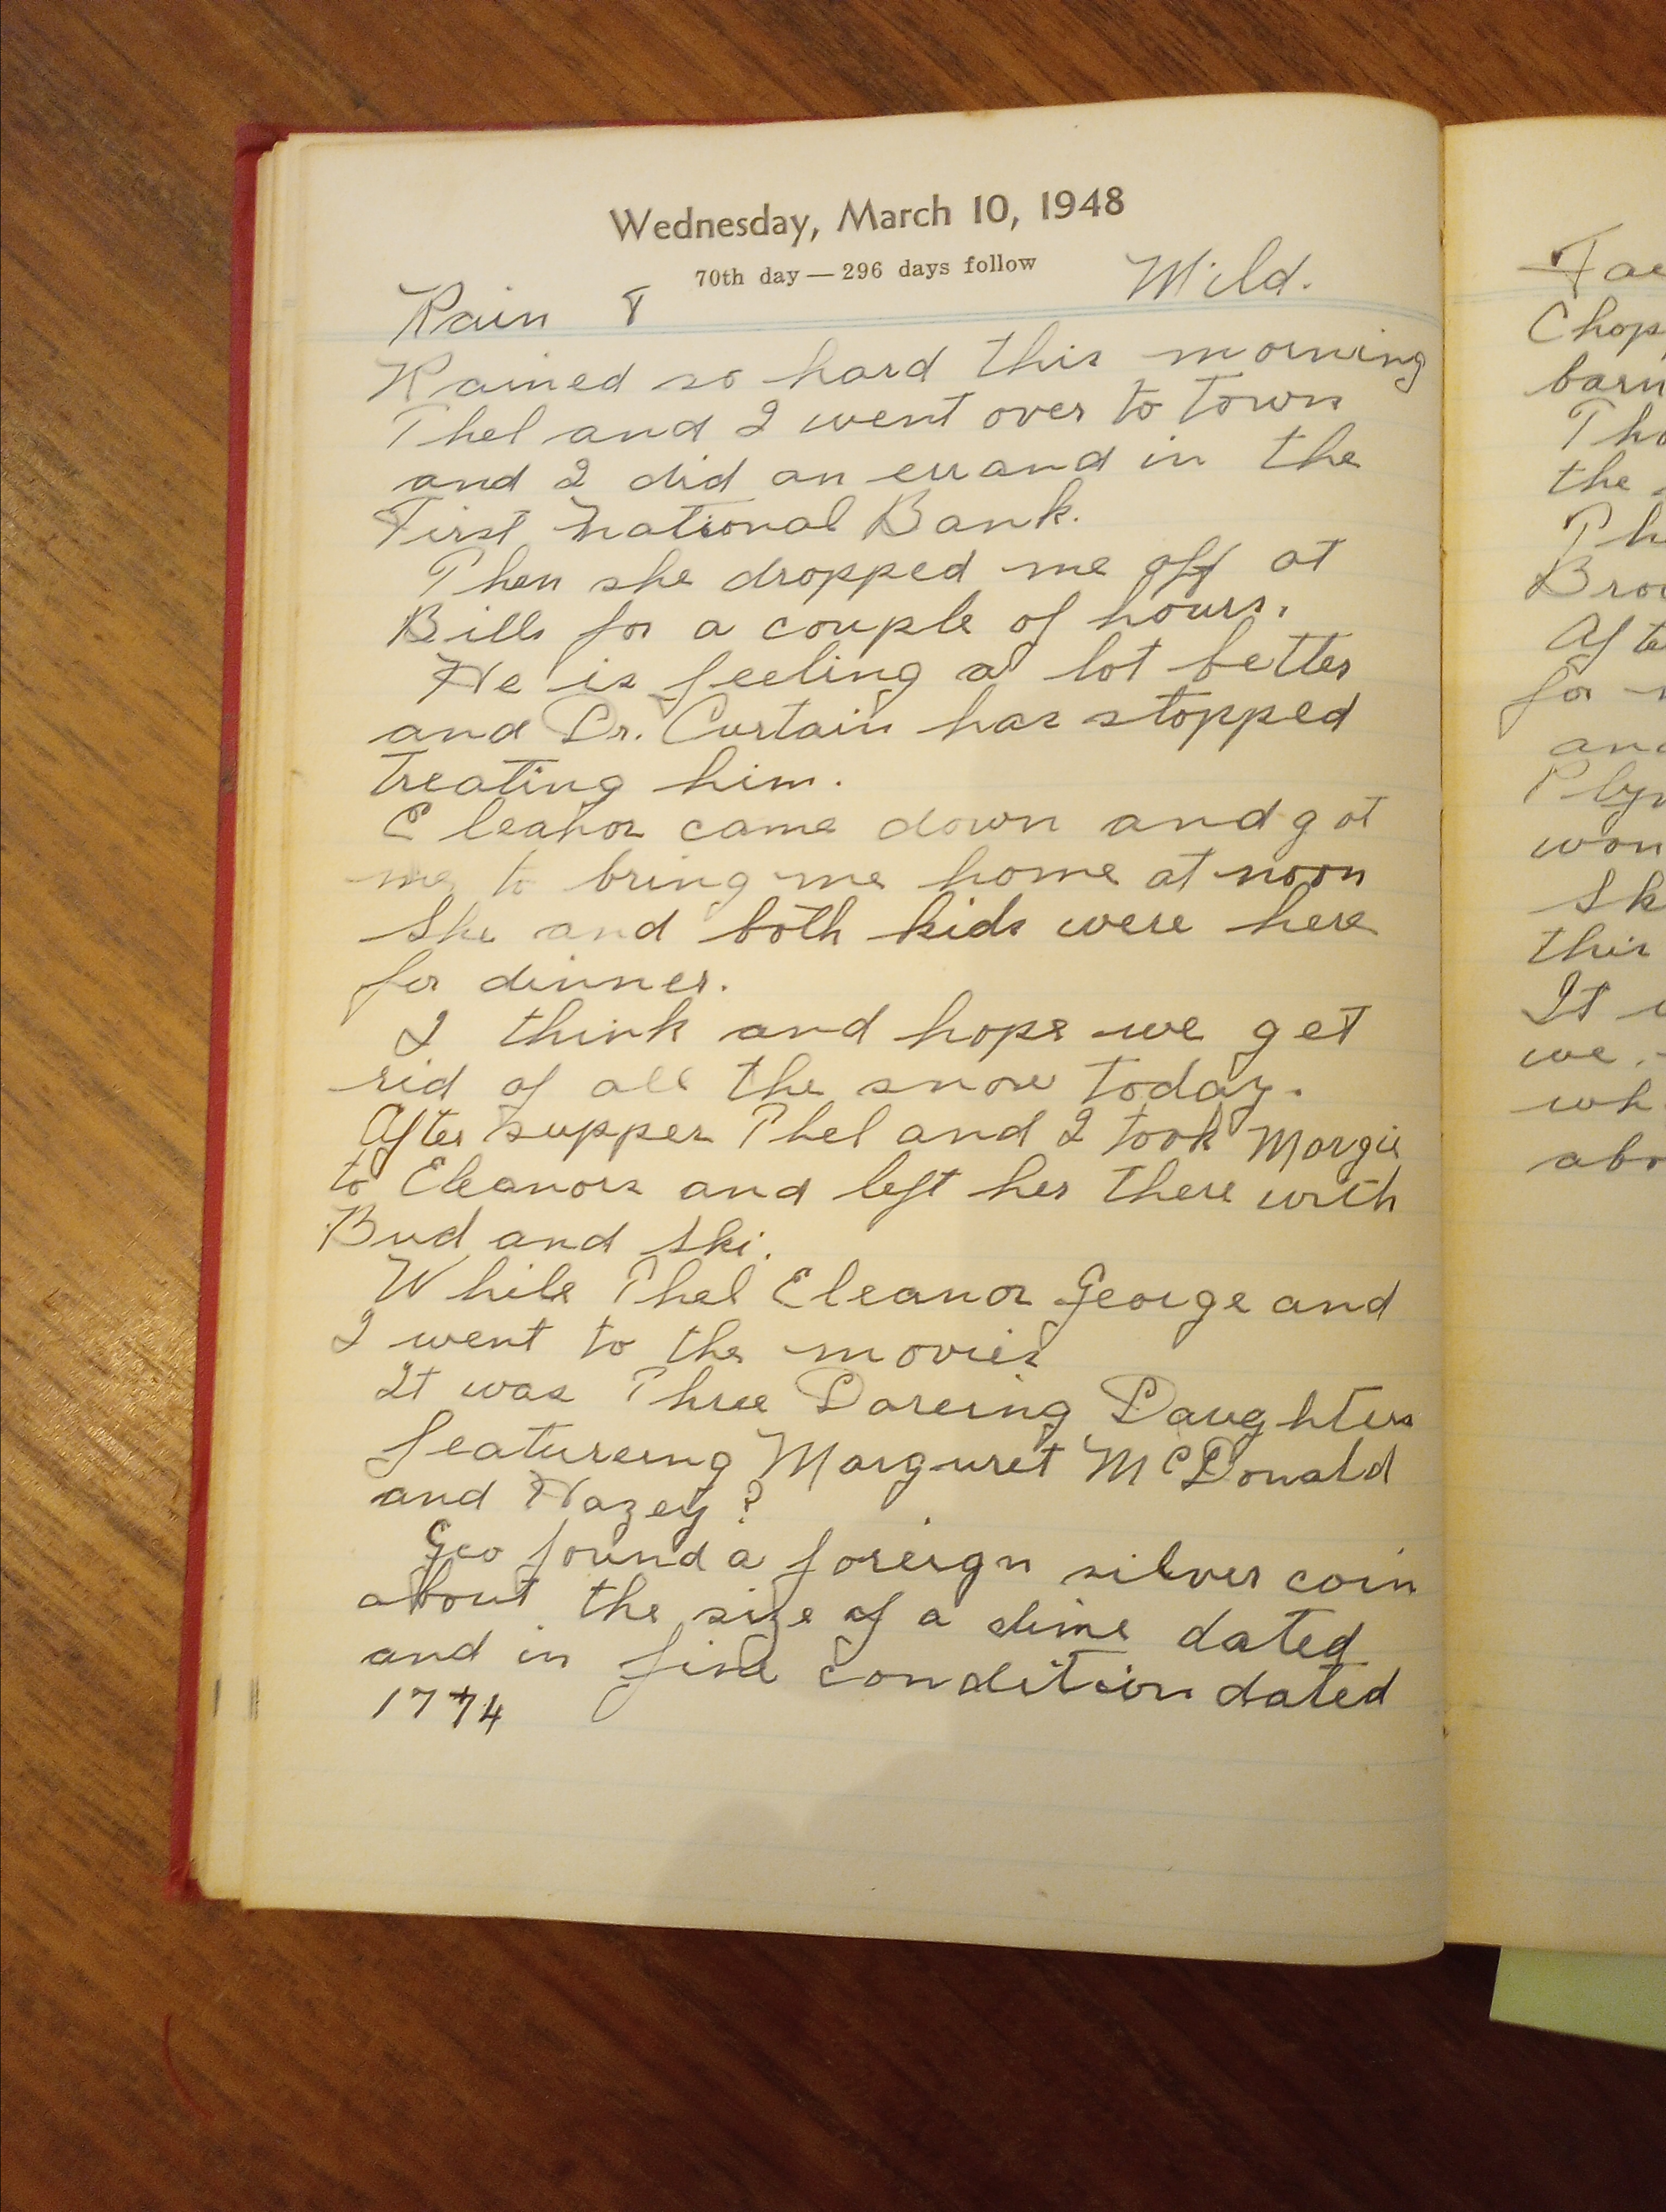 Wednesday, March 10, 1948
70th day — 296 days follow
Rain & Mild.
Rained so hard this morning
Thel and I went over to town
and I did an errand in the
First National Bank.
Then she dropped me off at
Bills for a couple of hours.
He is feeling a lot better
and Dr. Curtain has stopped
treating him.
Eleanor came down and got
me to bring me home at noon
She and both kids were here
for dinner.
I think and hope we get
rid of all the snow today.
After supper Thel and I took Margie
to Eleanors and left her there with
Bud and Ski.
While Thel Eleanor George and
I went to the movies
It was Three Dareing Daughters
featureing Marguret McDonald
and Hazey?
Geo found a foreign silver coin
about the size of a dime dated
and in fine condition dated
1774
Chop
barn
the
for
this
It
we